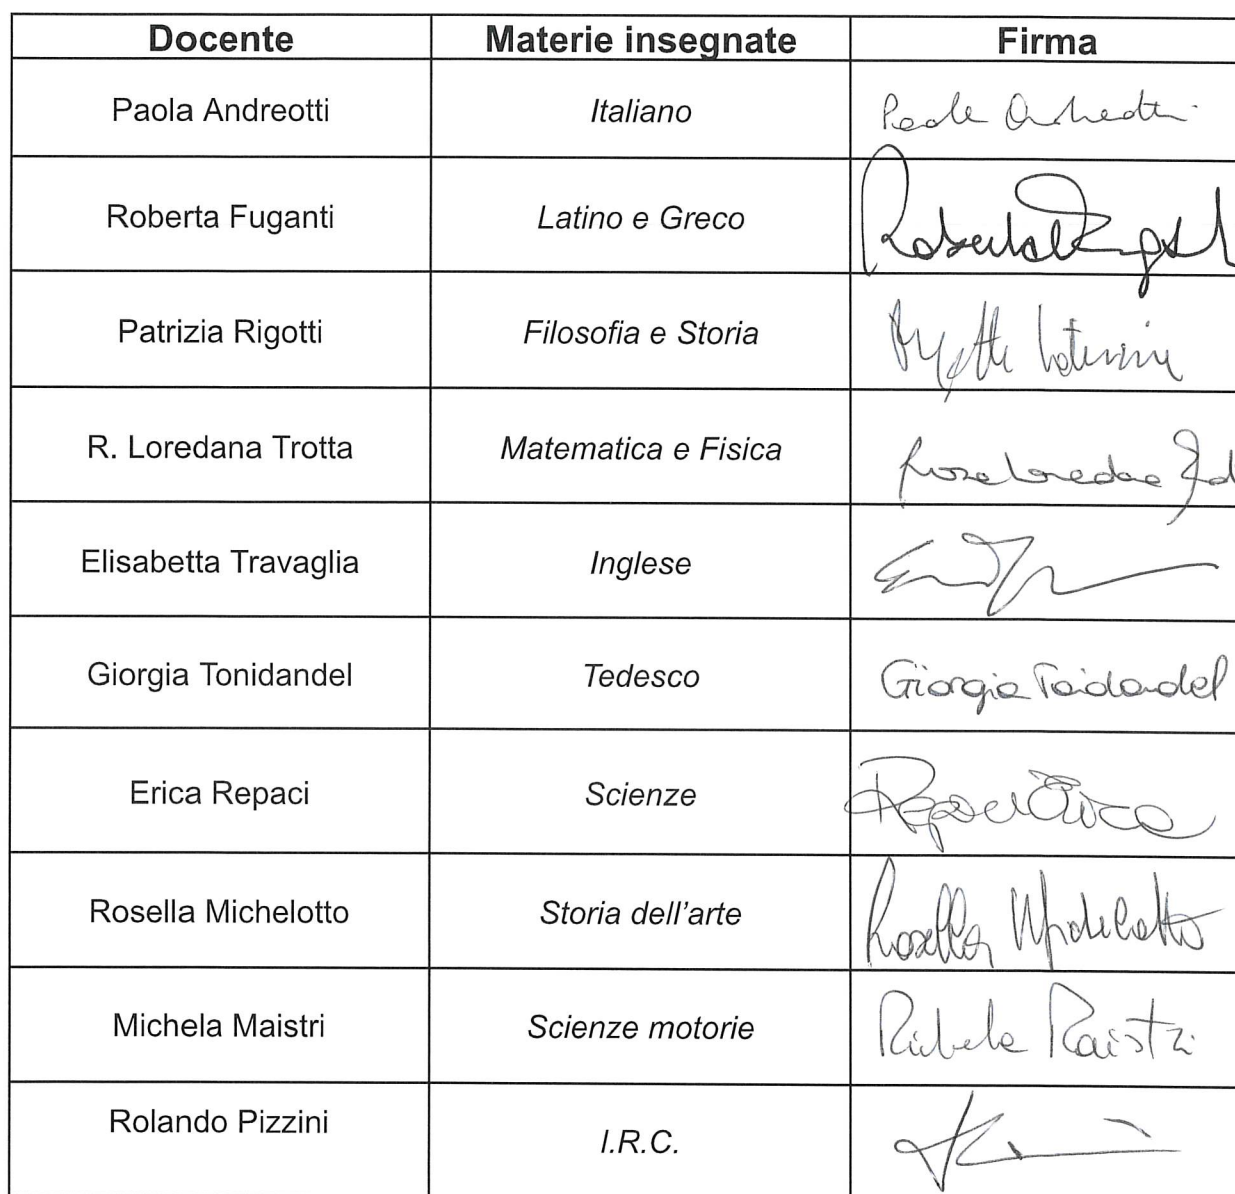 Docente Materie insegnate Firma
Paola Andreotti Italiano Paola Andreotti
Roberta Fuganti Latino e Greco Roberta
Patrizia Rigotti Filosofia e Storia
R. Loredana Trotta Matematica e Fisica Rosa Loredana
Elisabetta Travaglia Inglese
Giorgia Tonidandel Tedesco Giorgia Tonidandel
Erica Repaci Scienze Repaci Erica
Rosella Michelotto Storia dell'arte Rosella Michelotto
Michela Maistri Scienze motorie Michela Maistri
Rolando Pizzini I.R.C.